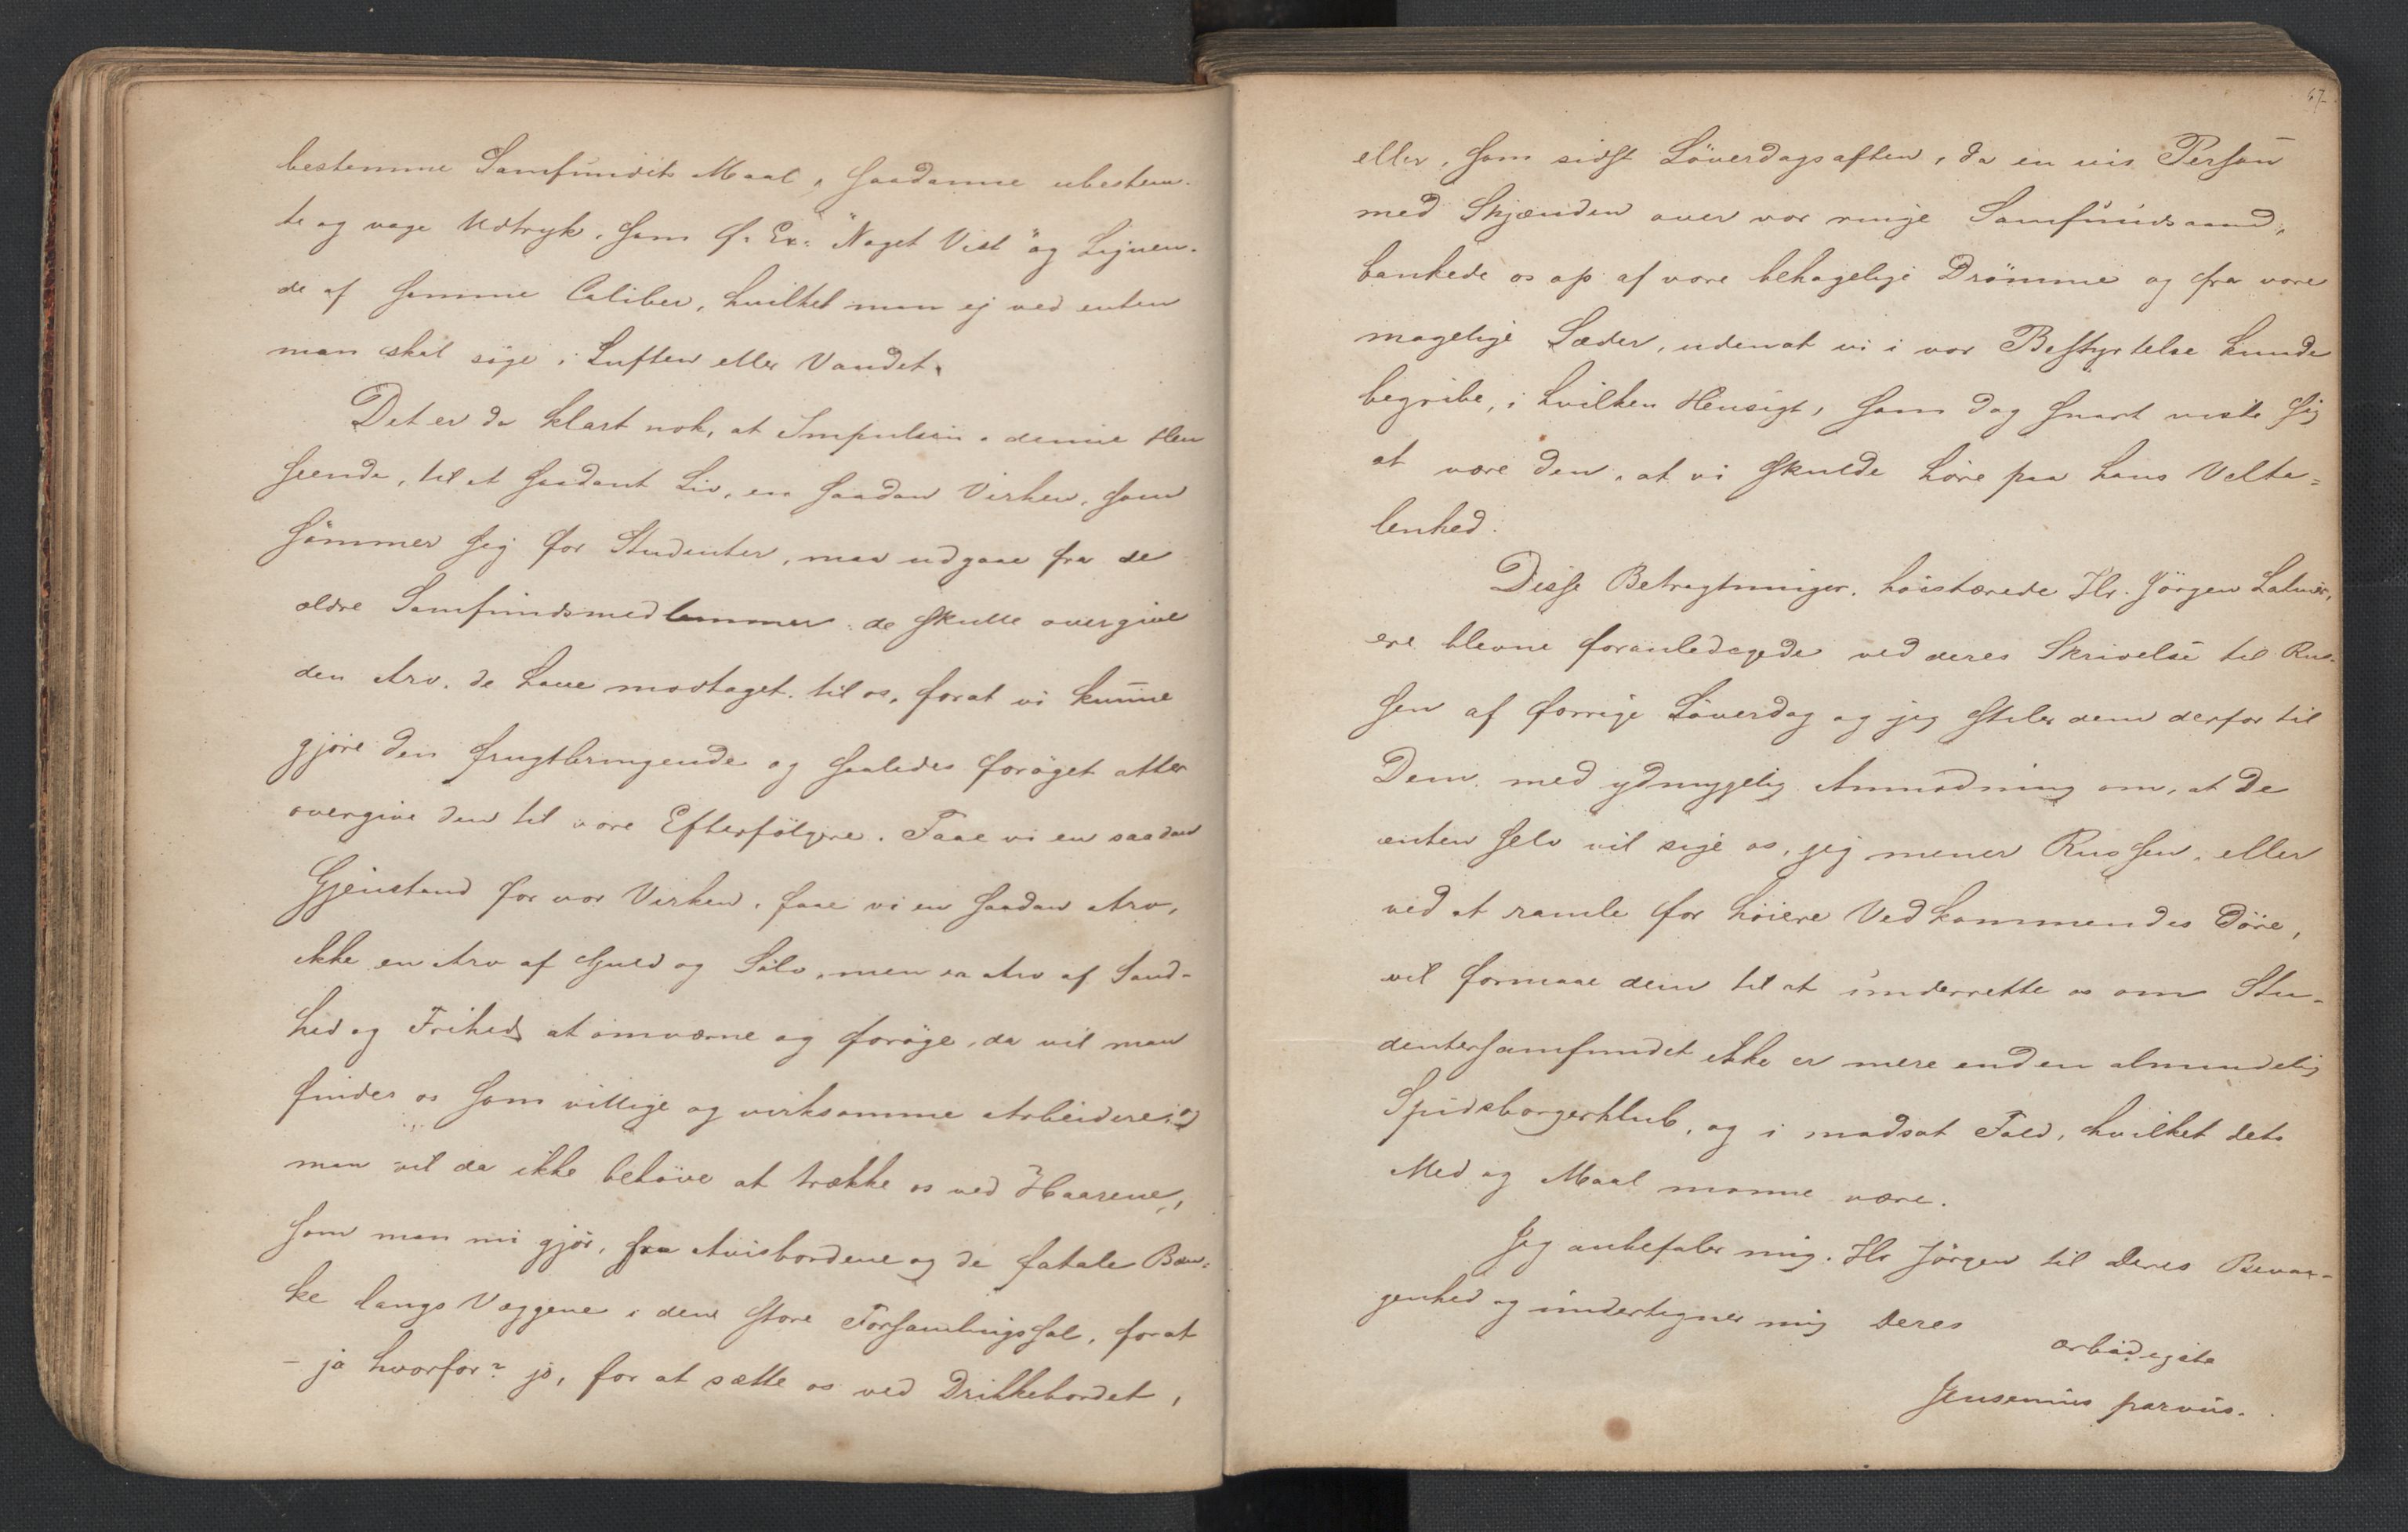 bestemme Samfundets Maal, saadanne ubestem-
te og vage Udtryk, som f. Ex. "Noget Vist" og Lignen-
de af samme Caliber, hvilket man ej ved enten
man skal søge i Luften eller Vandet.
Det er da klart nok, at Impulsen i denne Hen
seende, til et saadant Liv, en saadan Virken, som
sömmer sig for Studenter, maa udgaae fra de
ældre Samfundsmedlemmer: de skulle overgive
den Arv, de have modtaget til os, forat vi kunne
gjøre den frugtbringende og saaledes forøget atter
overgive den til vore Efterfølgere. Faae vi en saadan
Gjenstand for vor Virken, faae vi en saadan Arv,
ikke en Arv af Guld og Sølv, men en Arv af Sand-
hed og Frihed at omværne og forøge, da vil man
finde os som villige og virksomme Arbeidere; og
man vil da ikke behøve at trække os ved Haarene,
som man nu gjør, fra Avisbordene og de fatale Bæn-
ke langs Væggene i den store Forsamlingssal, forat
- ja hvorfor? jo, for at sætte os ved Drikkebordet,
67.
eller, som sidst Löverdagsaften, da en vis Person
med Skjænden over vor ringe Samfundsaand,
bankede os op af vore behagelige Drömme og fra vore
magelige Sæder, udenat vi i vor Bestyrtelse kunde
begribe, i hvilken Hensigt, som dog snart viste sig
at være den, at vi skulde høre paa hans Velta-
lenhed.
Disse Betragtninger, höistærede Hr. Jörgen Latiner,
ere blevne foranledigede ved deres Skrivelse til Rus-
sen af forrige Löverdag og jeg stiler dem derfor til
Dem, med ydmygelig Anmodning om, at De
enten selv vil sige os, jeg mener Russen, eller
ved at ramle for høiere Vedkommendes Döre,
vil formaae dem til at underrette os om Stu-
dentersamfundet ikke er mere end en almindelig
Spidsborgerklub, og i modsat Fald, hvilket dets
Med og Maal monne være.
Jeg anbefaler mig, Hr Jörgen til Deres Bevaa-
genhed og undertegner mig Deres
ærbødigste
Jensenius parvus.